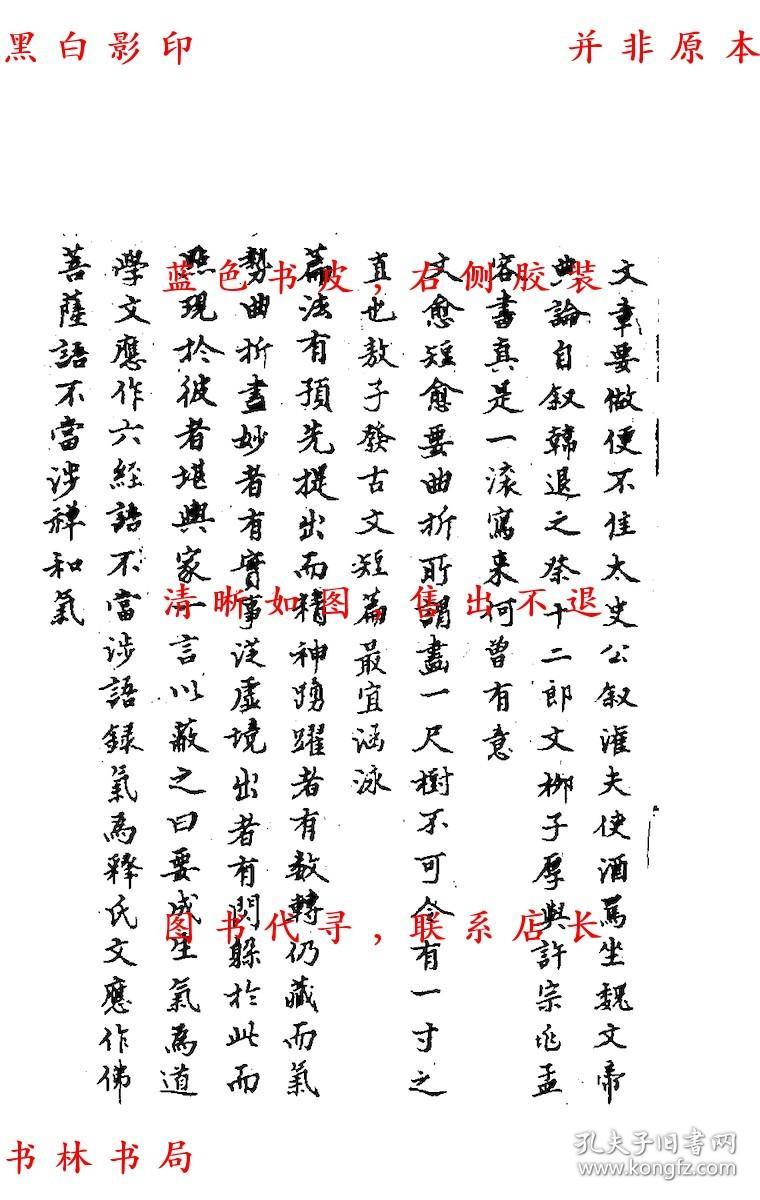 黑白影印
并非原本
文章要做便不佳太史公叙灌夫使酒罵坐魏文帝
典論自叙韓退之祭十二郎文柳子厚與許宗兆孟
容書真是一滚寫来何曾有意
文愈短愈要曲折所謂畫一尺樹不可令有一寸之
直也敖子發古文短篇最宜涵泳
篇法有預先提出而精神踴躍者有数轉仍藏而氣
勢曲折盡妙者有實事從虚境出者有閃躲於此而
照現於彼者堪輿家一言以蔽之曰要成生氣為道
學文應作六經語不當涉語録氣為釋氏文應作佛
菩薩語不當涉禅和氣
蓝色书皮，右侧胶装
清晰如图，售出不退
图书代寻，联系店长
书林书局
孔夫子旧书网
www.kongfz.com